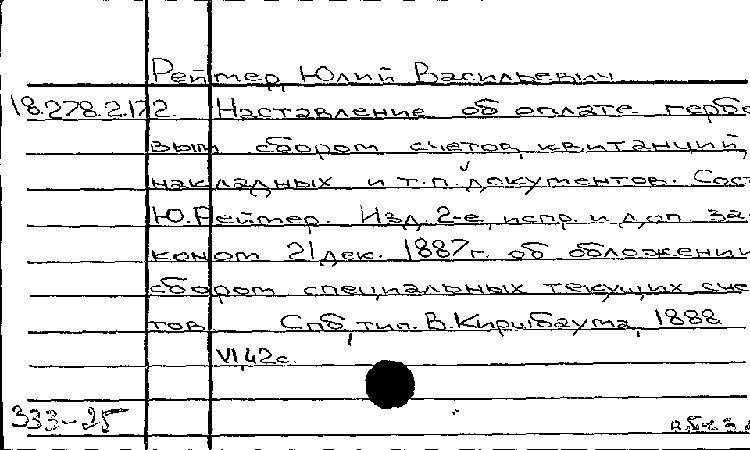 Реймер, Юлий Васильевич
18.278.2.172. Наставление об оплате гербо
вым сбором счетов, квитанций,
накладных и т.п. документов. Сост.
Ю. Реймер. Изд. 2-е, испр. и доп. за
коном 21 дек. 1887 г. об обложении
сбором специальных текущих сче
тов. Спб, тип. В. Киршбаума, 1888
VI, 42 с.
333-25